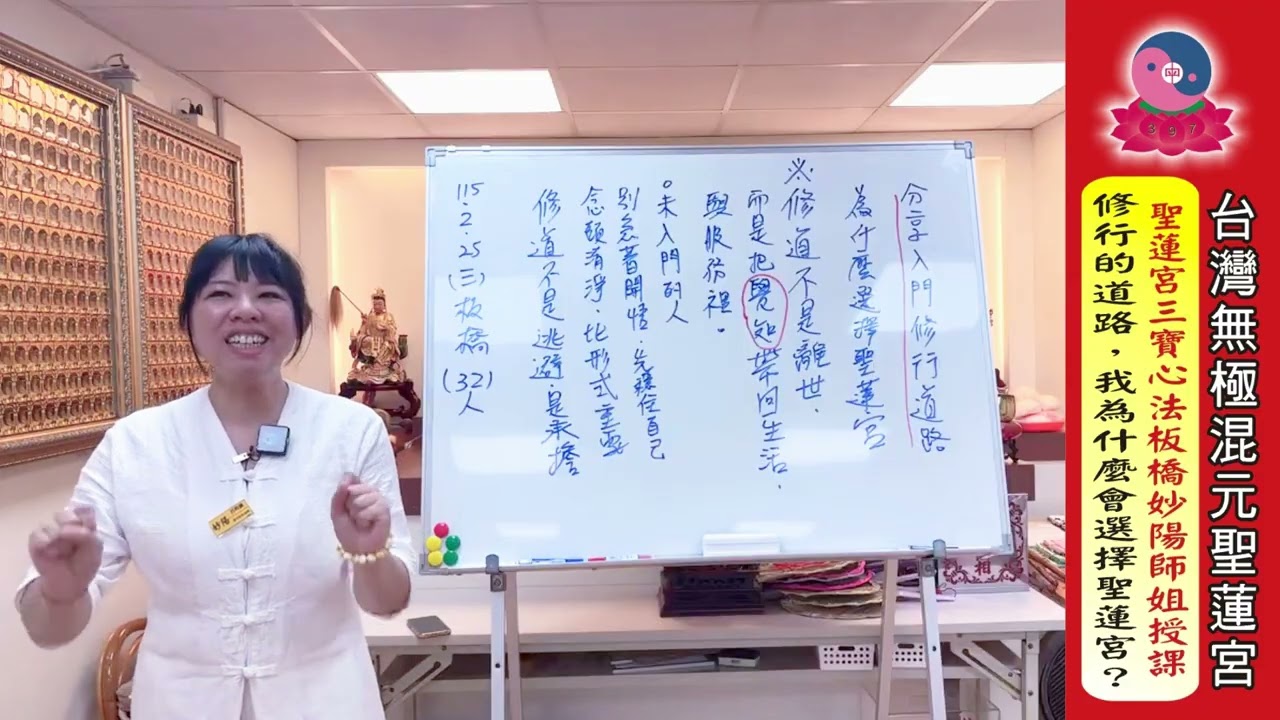 台灣無極混元聖蓮宮
聖蓮宮三寶心法板橋妙陽師姐授課
修行的道路，我為什麼會選擇聖蓮宮？
397
分享入門修行道路
為什麼選擇聖蓮宮
※修道不是離世．
而是把覺知帶回生活．
與服務裡．
。未入門的人
別急著開悟．先穩住自己
念頭清淨．比形式重要
修道不是逃避．是承擔
115．2．25（三）板橋（32）人
妙陽